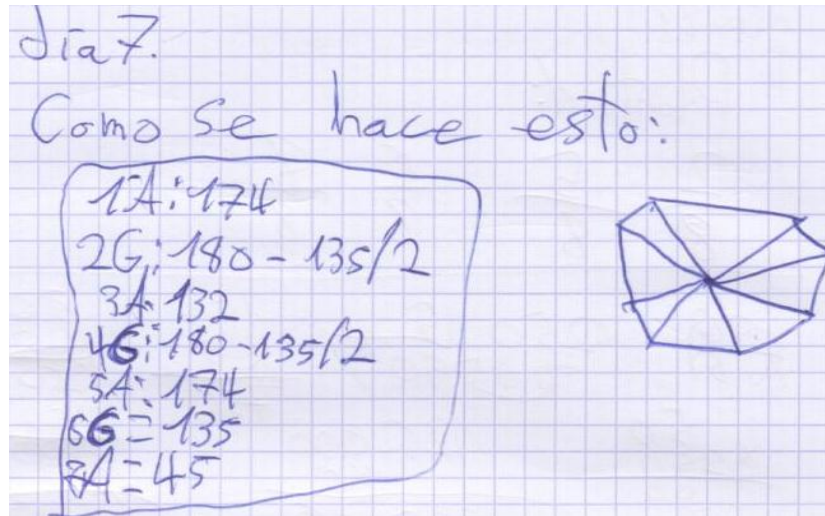 día 7.
Como se hace esto:
1A: 174
2G: 180 - 135/2
3A: 132
4G: 180 - 135/2
5A: 174
6G = 135
7A = 45